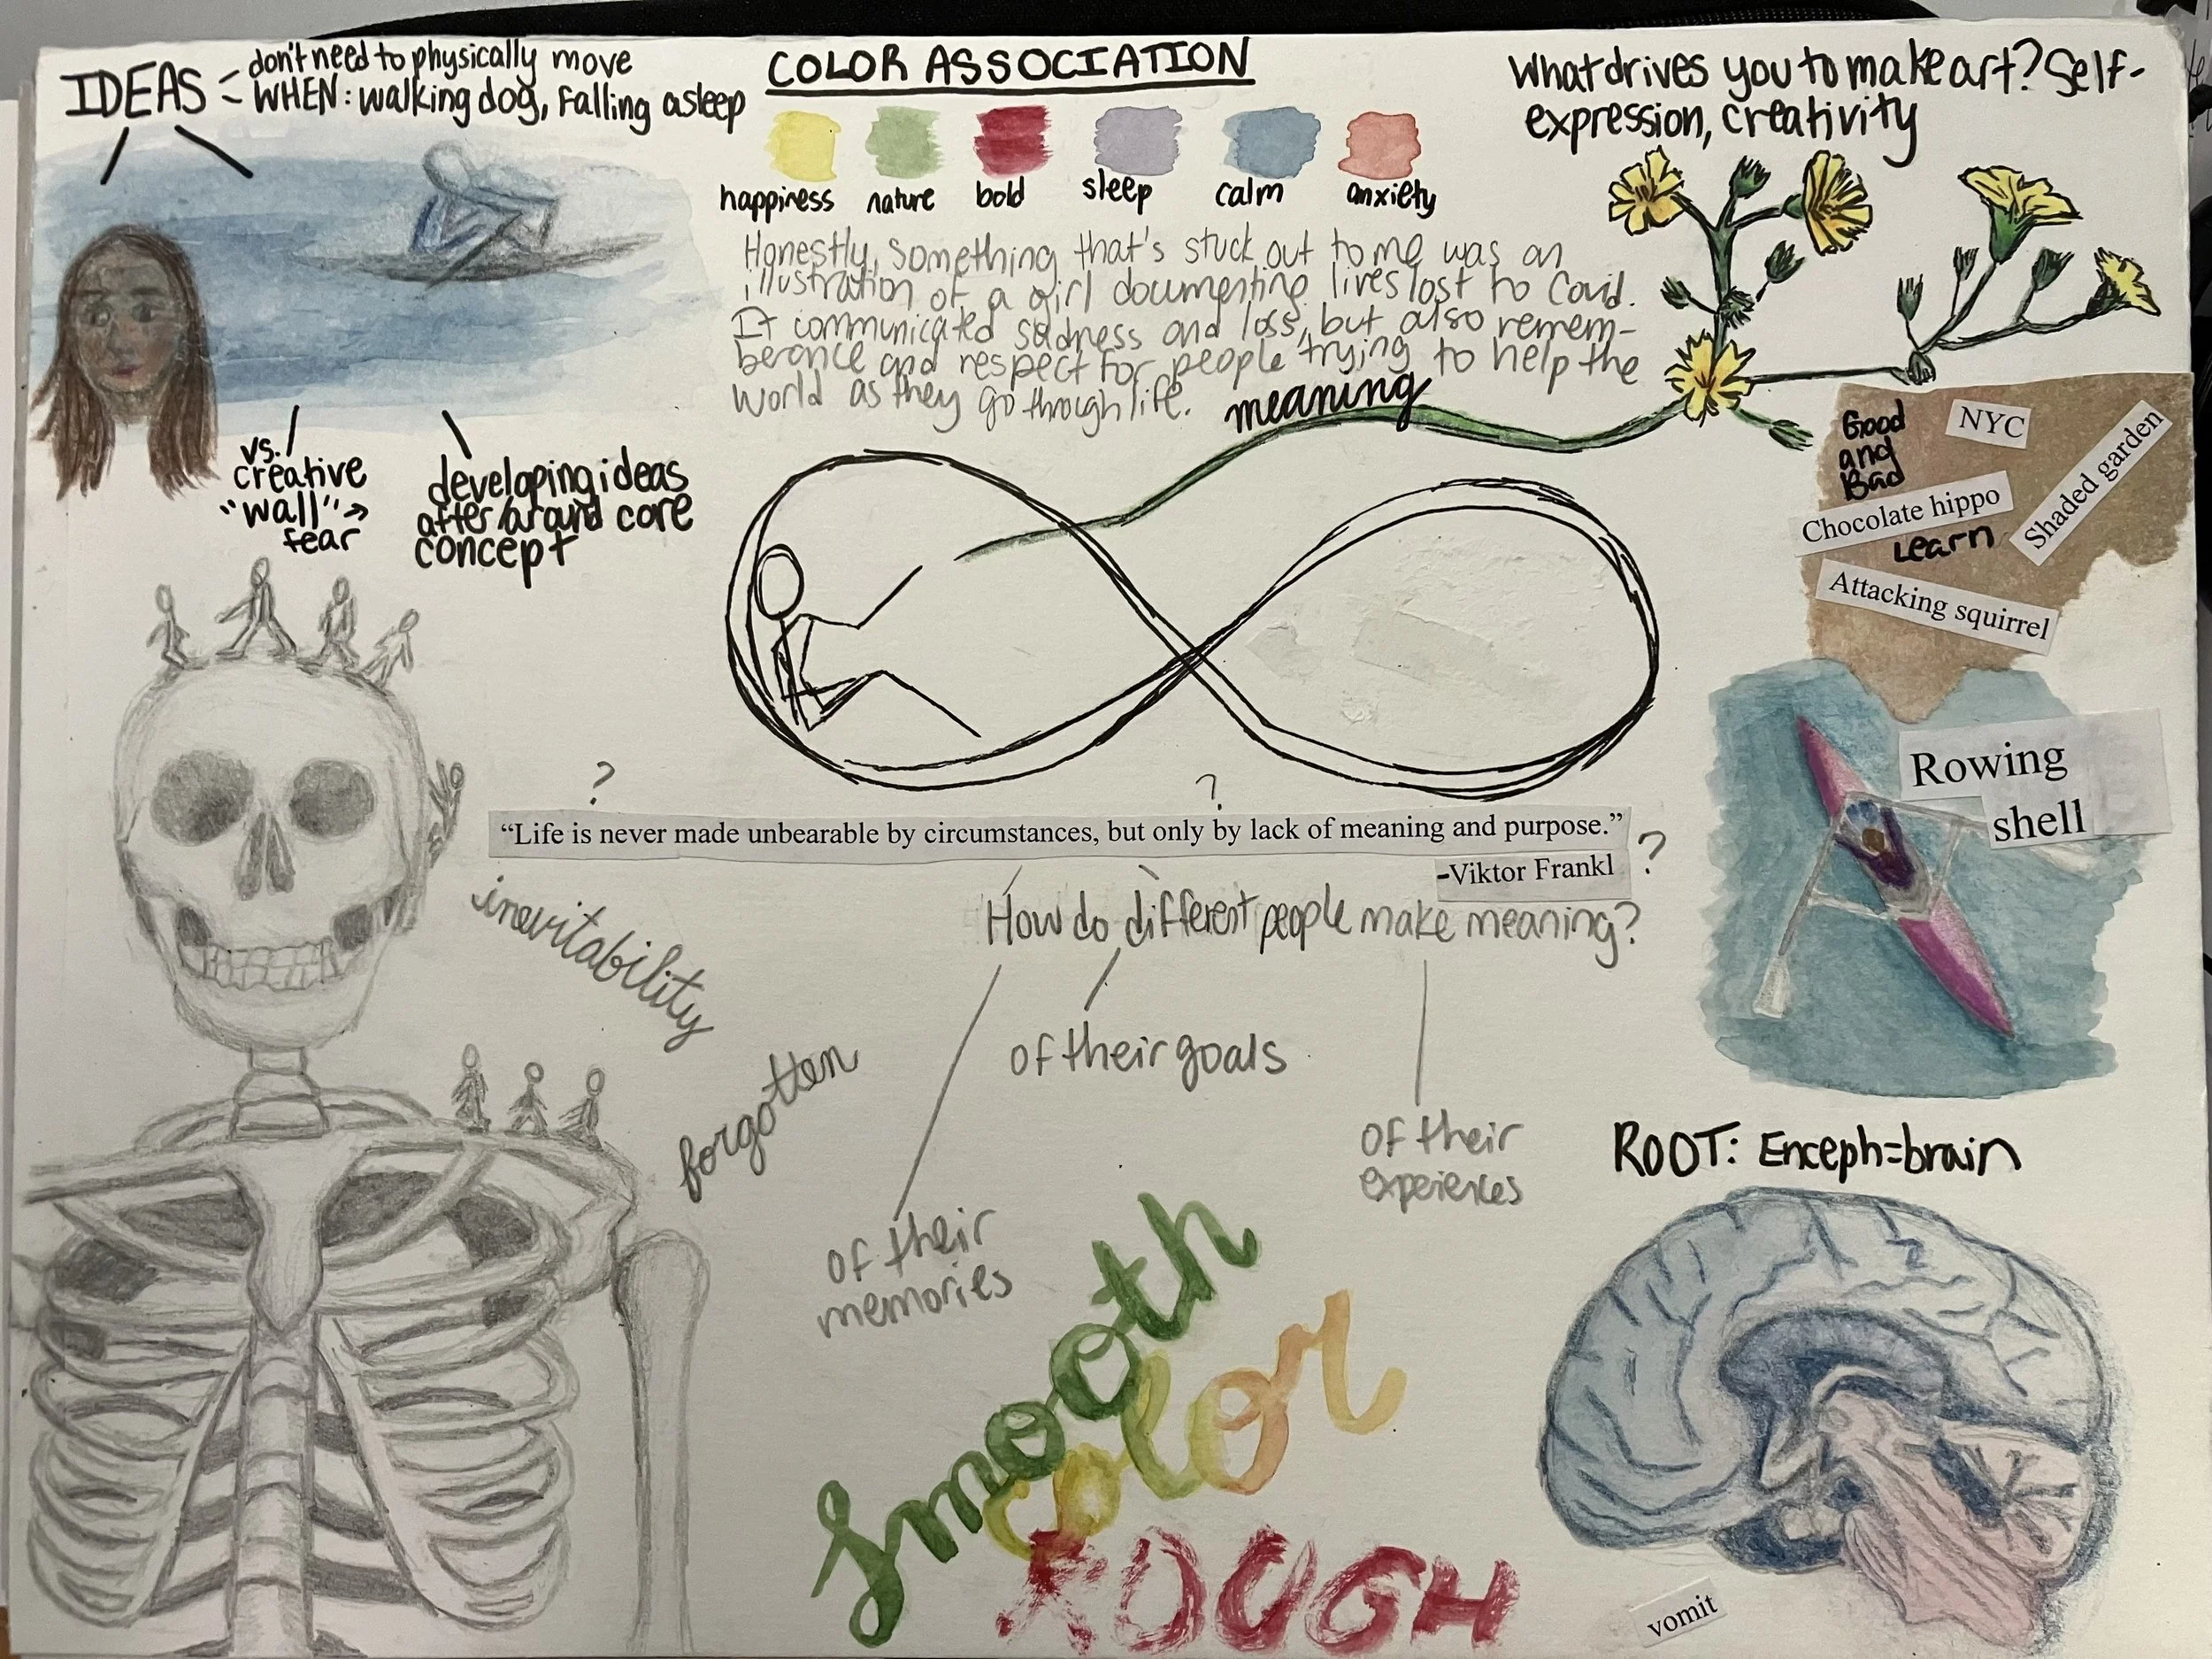 IDEAS - don't need to physically move
- WHEN: walking dog, falling asleep
COLOR ASSOCIATION
happiness
nature
bold
sleep
calm
anxiety
What drives you to make art? Self-
expression, creativity
Honestly, something that's stuck out to me was an
illustration of a girl documenting lives lost to Covid.
It communicated sadness and loss, but also remem-
berance and respect for people trying to help the
world as they go through life.
meaning
vs.
creative
"wall" →
fear
developing ideas
after/around core
concept
Good
and
Bad
NYC
Shaded garden
Chocolate hippo
Learn
Attacking squirrel
Rowing
shell
?
?
"Life is never made unbearable by circumstances, but only by lack of meaning and purpose."
-Viktor Frankl
?
How do different people make meaning?
inevitability
forgotten
of their goals
of their
experiences
of their
memories
ROOT: Enceph=brain
smooth
color
ROUGH
vomit